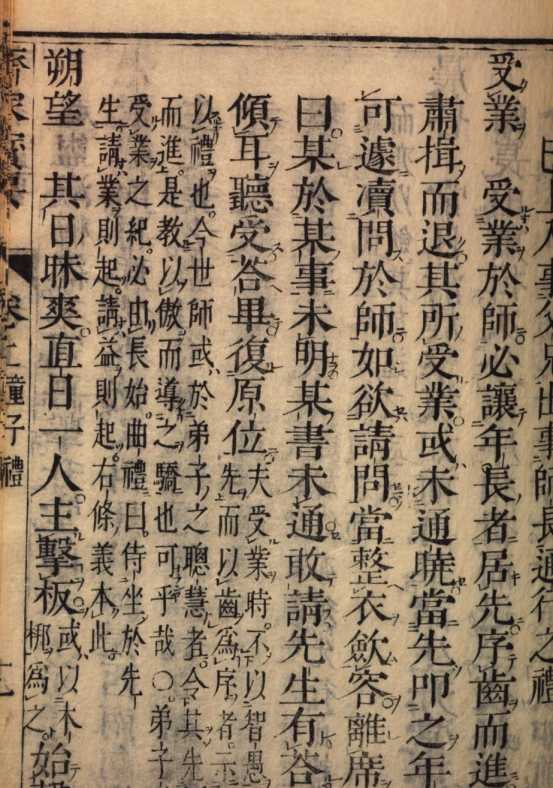 入事父兄出事師長通行之禮
受業 受業於師必讓年長者居先序齒而進
肅揖而退其所受業或未通曉當先叩之年
可遽凟問於師如欲請問當整衣斂容離席
曰某於某事未明某書未通敢請先生有答
傾耳聽受答畢復原位夫受業時不以智愚
先而以齒爲序者示
以禮也今世師或於弟子之聰慧者令其先
而進是教以傲而導之驕也可乎哉○弟子
受業之紀必由長始曲禮曰侍坐於先
生請業則起請益則起右條義本此
朔望 其日昧爽直日一人主擊板或以木
梆爲之始
齊家寶要 卷上 童子禮